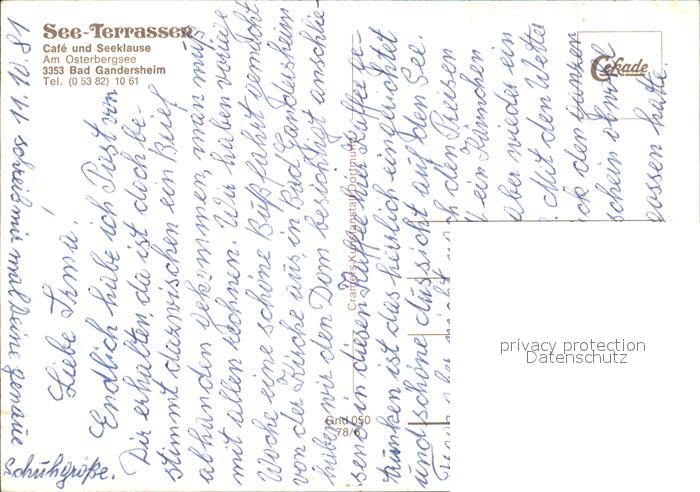 See-Terrassen
Café und Seeklause
Am Osterbergsee
3353 Bad Gandersheim
Tel. (0 53 82) 10 61
Cekade
Cramers Kunstanstalt Dortmund
Gnd 050
78/6
18.10.11 schreib mir mal Deine genaue
Schuhgröße.
Liebe Irma!
Endlich habe ich Post von
Dir erhalten, da ist doch be-
stimmt dazwischen ein Brief
abhanden gekommen, man muß
mit allen rechnen. Wir haben vorige
Woche eine schöne Bußfahrt gemacht
von der Kirche aus, in Bad Gandersheim
haben wir den Dom besichtigt anschlie-
send in diesen Kaffee hier Kaffee ge-
trunken ist das herlich eingerichtet
und schöne Aussicht auf den See.
den Preisen
ein Kännchen
aber wieder ein
Mit den Wetter
den ganzen
schein
gossen hatte.
privacy protection
Datenschutz